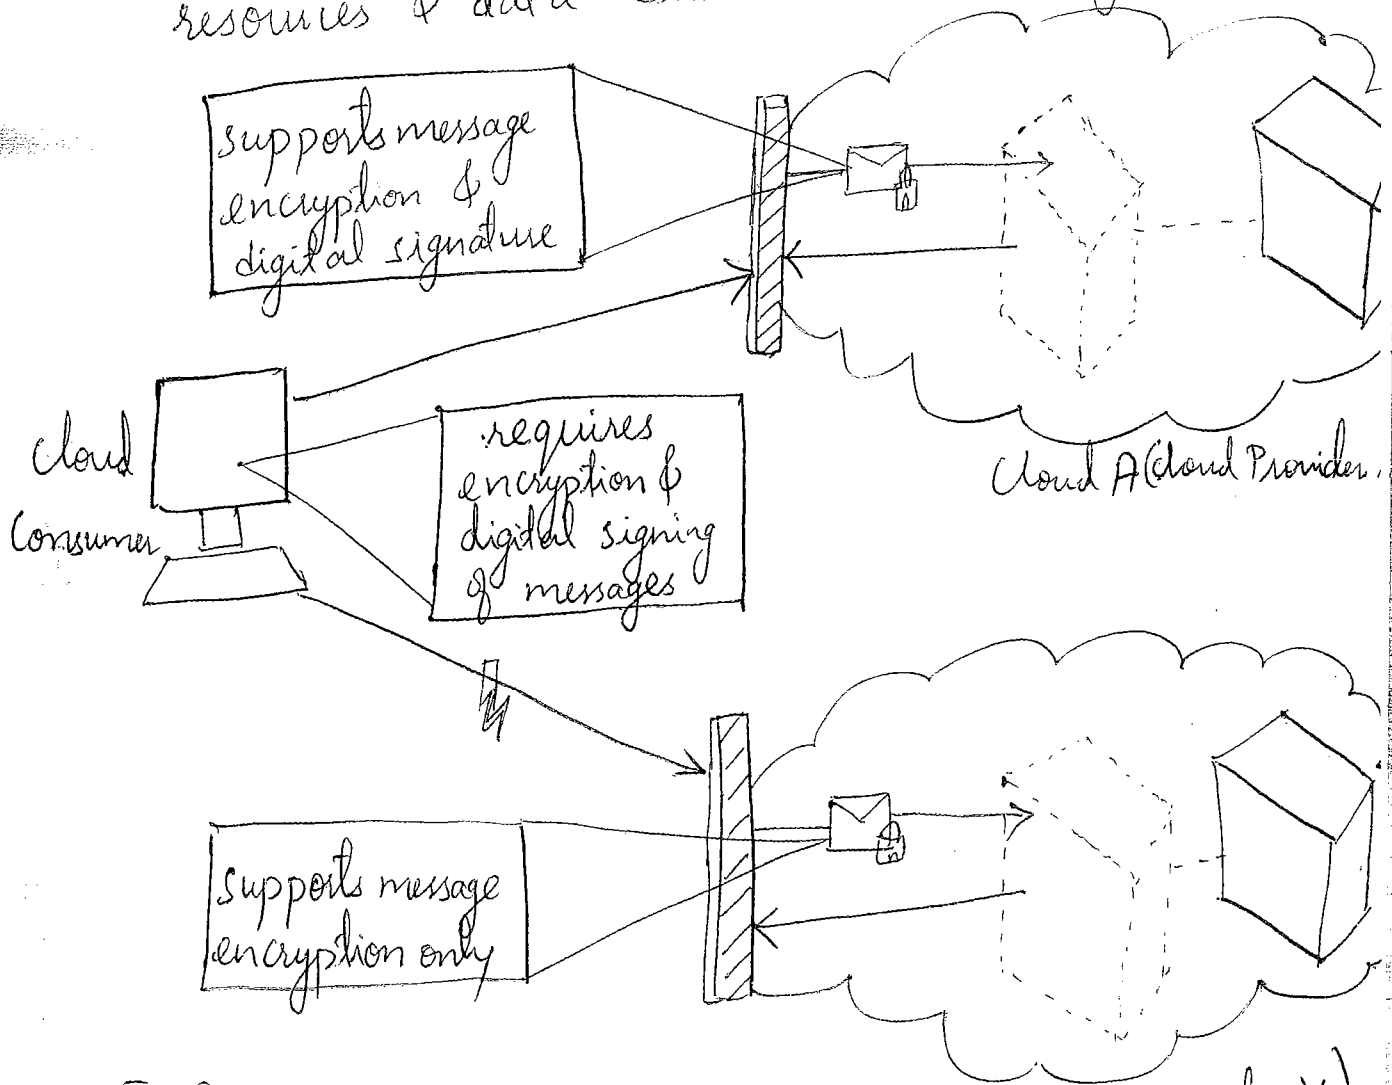 resources & data
supports message
encryption &
digital signature
requires
encryption &
digital signing
of messages
Cloud
Consumer
Cloud A (Cloud Provider.
supports message
encryption only